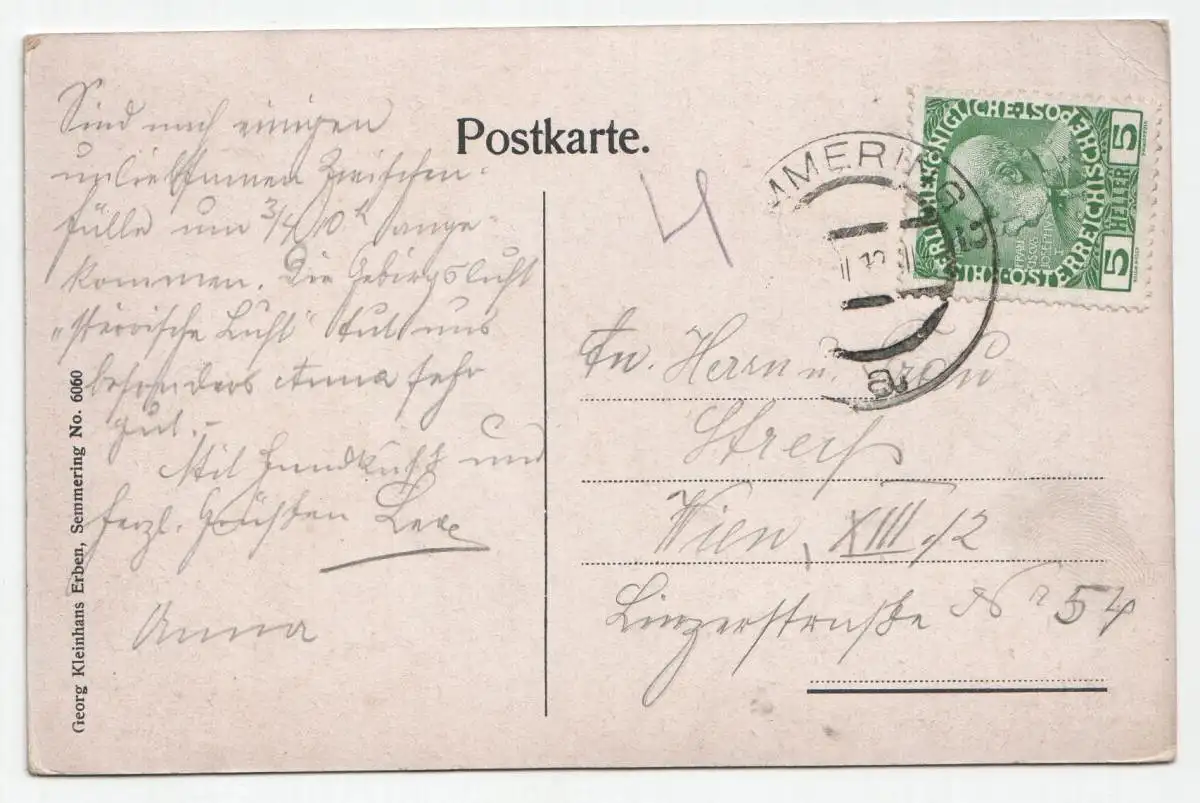 Postkarte.
Sind nach einigen
unliebsamen Zwischen-
fällen um 3/4 10 h ange-
kommen. Die Gebirgsluft
"steirische Luft" tut uns
besonders Anna sehr
gut.-
Mit Handkuß und
herzl. Grüßen
Anna
Georg Kleinhans Erben, Semmering No. 6060
4
MMERING
a
KAISERLICHE KÖNIGLICHE POST
ÖSTERREICHISCHE
5 HELLER 5
FRAN
CISCVS
IOSEPHVS
I
An Herrn u. Frau
Streif
Wien, XIII/2
Linzerstraße No 54